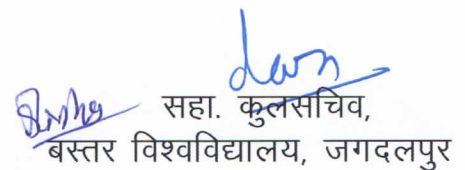 सहा. कुलसचिव,
बस्तर विश्वविद्यालय, जगदलपुर